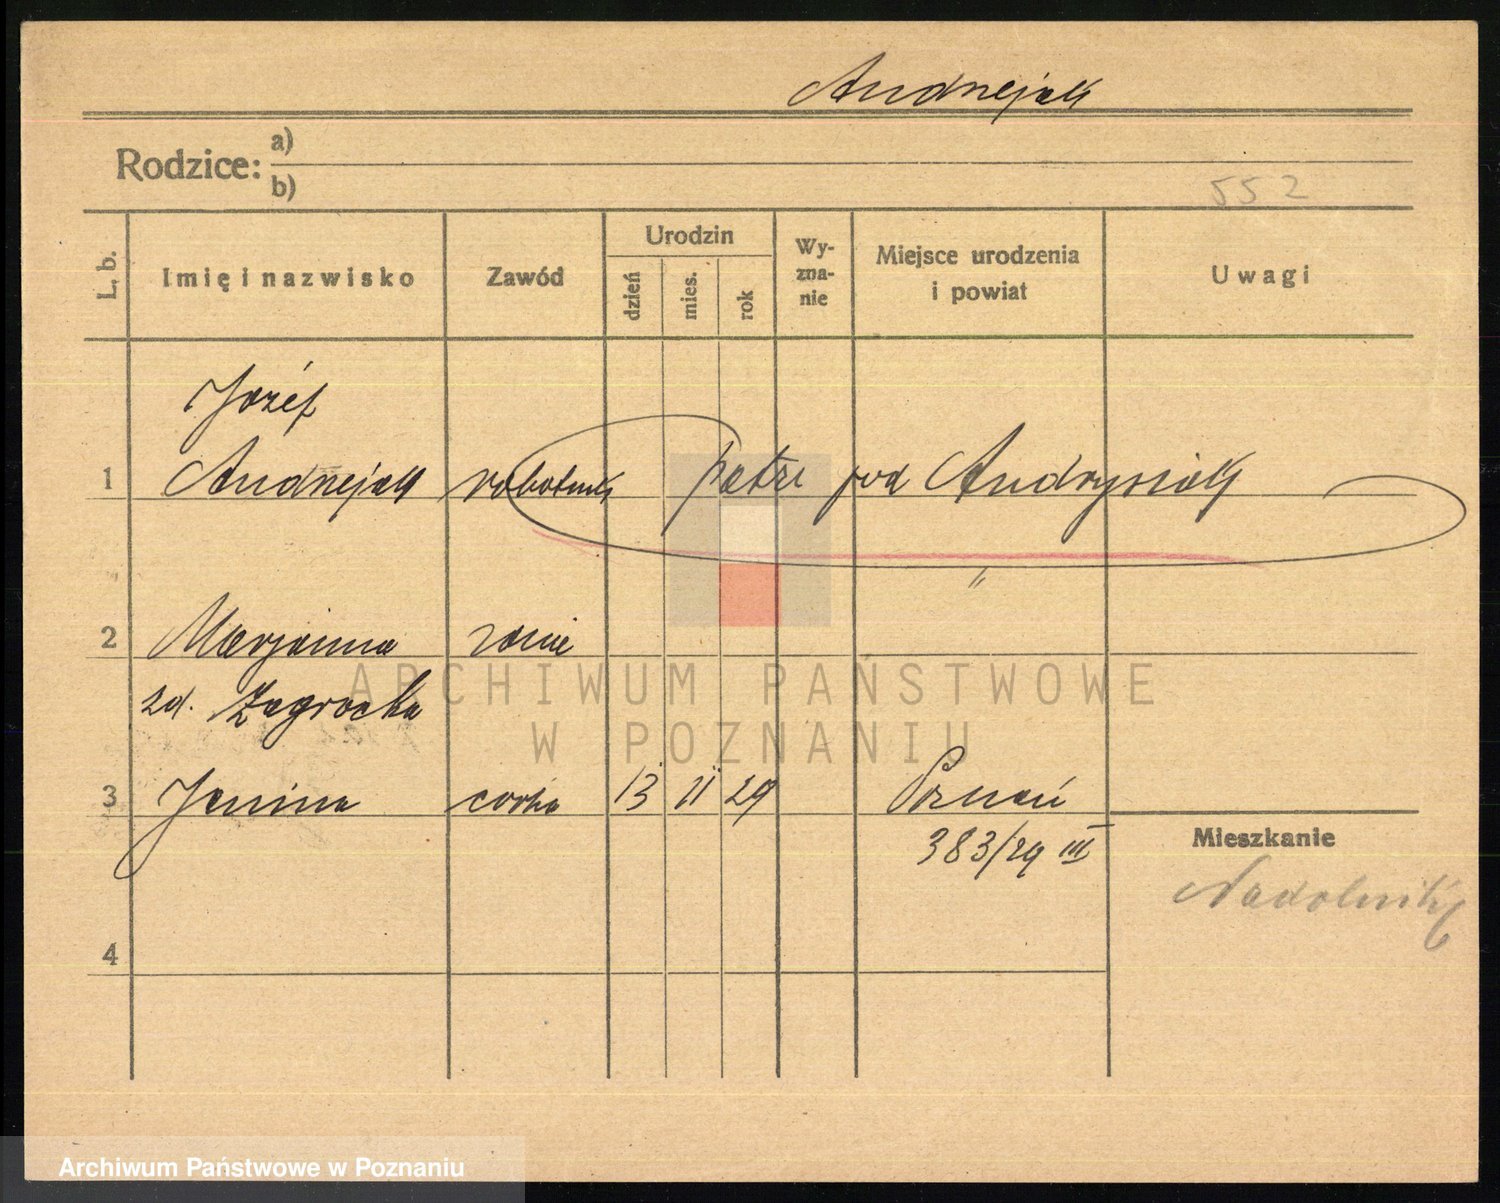 Andrzejak
Rodzice: a)
b)
552
L. b. Imię i nazwisko Zawód Urodzin dzień mies. rok Wy-zna-nie Miejsce urodzenia i powiat Uwagi
Józef
1 Andrzejak robotnik patrz pod Andrysiak
"
2 Marjanna żona
zd. Zagrocka
3 Janina córka 13 11 29 Poznań
383/29 III
Mieszkanie
Nadolnik
4
ARCHIWUM PAŃSTWOWE
W POZNANIU
Archiwum Państwowe w Poznaniu